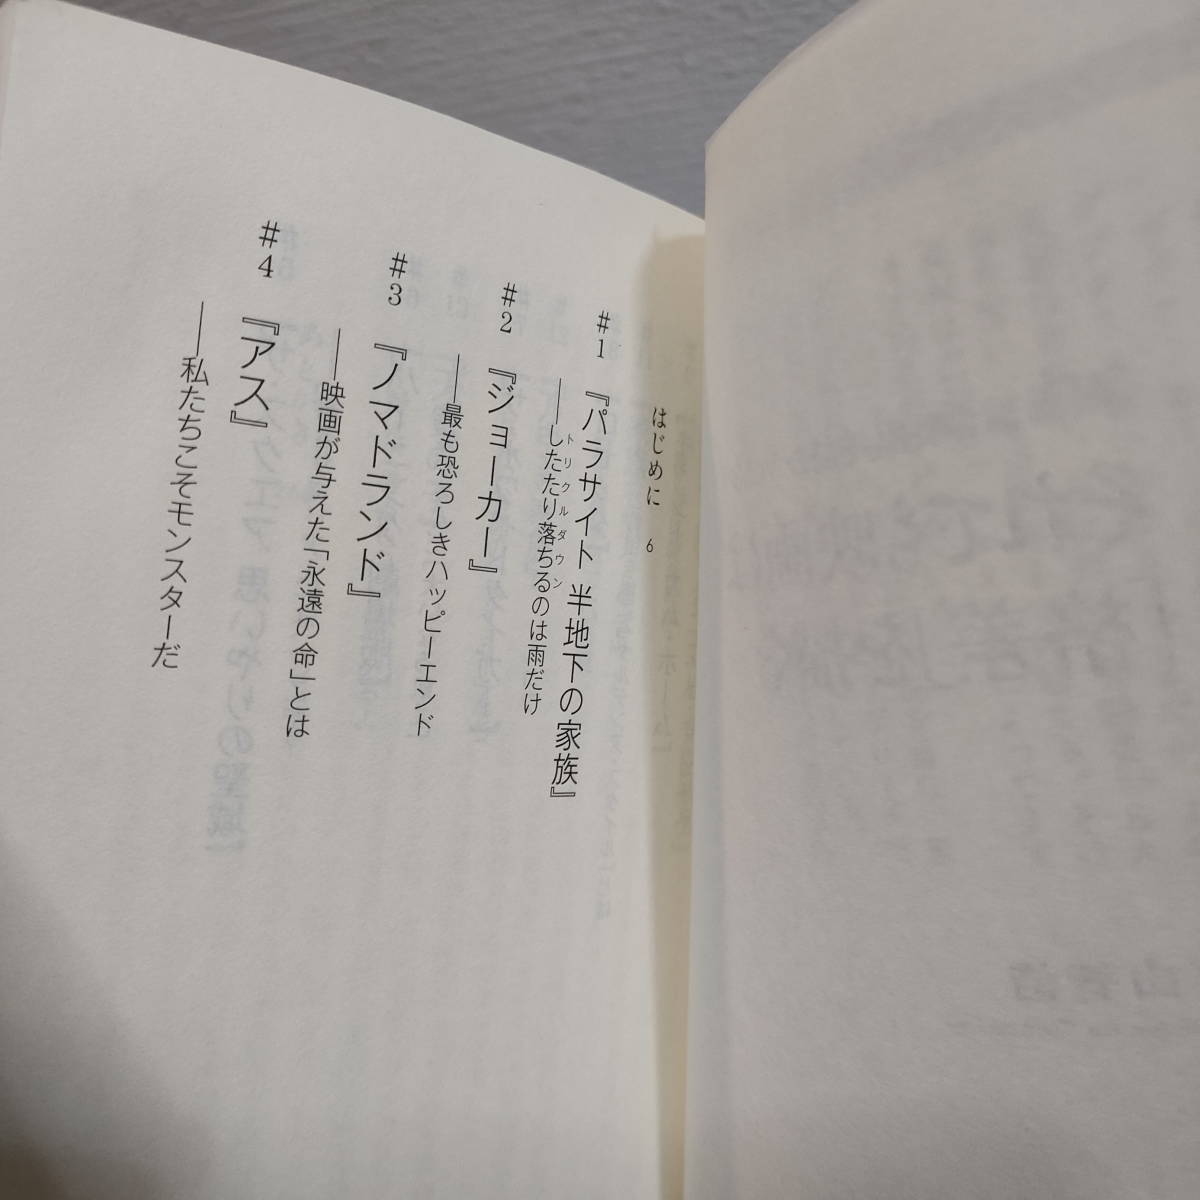 はじめに 6
#1 『パラサイト 半地下の家族』
――したたり落ちるのは雨だけ
トリクルダウン
#2 『ジョーカー』
――最も恐ろしきハッピーエンド
#3 『ノマドランド』
――映画が与えた「永遠の命」とは
#4 『アス』
――私たちこそモンスターだ